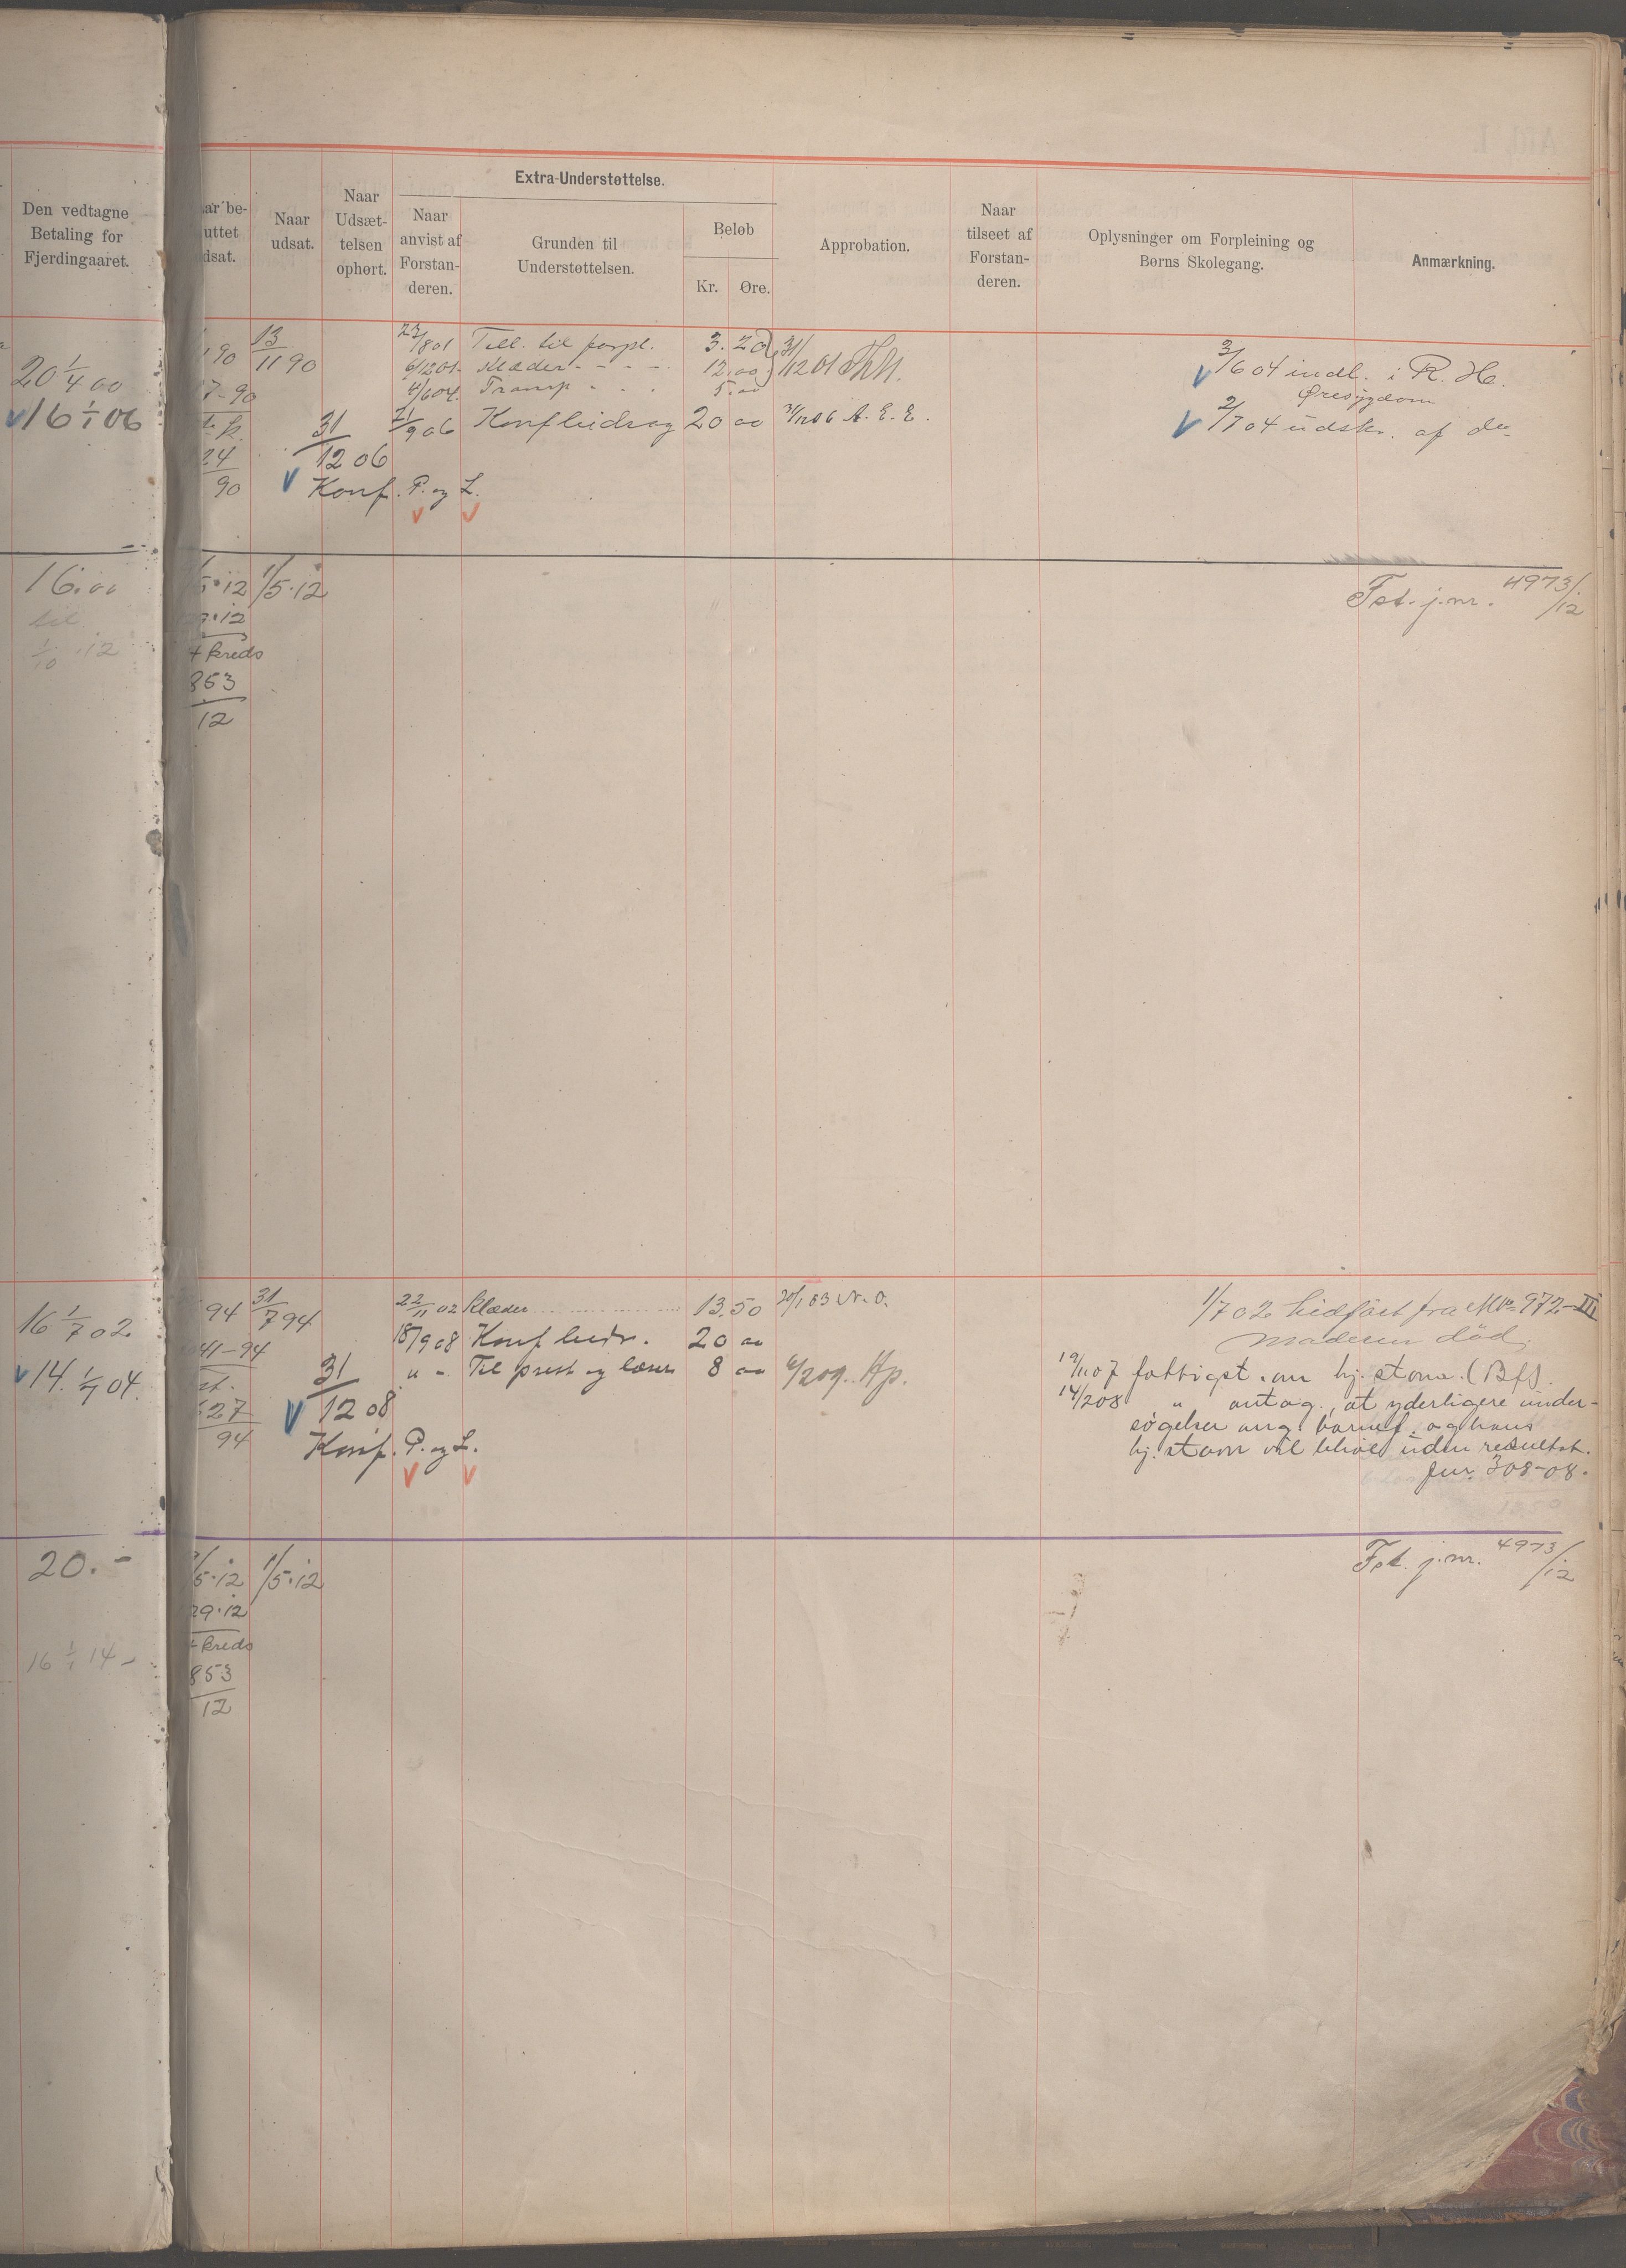 Extra-Understøttelse.
Den vedtagne
Betaling for
Fjerdingaaret.
ar be-
uttet
dsat.
Naar
udsat.
Naar
Udsæt-
telsen
ophørt.
Naar
anvist af
Forstan-
deren.
Grunden til
Understøttelsen.
Beløb
Kr. Øre.
Approbation.
Naar
tilseet af
Forstan-
deren.
Oplysninger om Forpleining og
Børns Skolegang.
Anmærkning.
20 1/4 00
16 1/1 06
90
7-90
24
90
13/11 90
31/12 06
Konf. P. og L.
23/8 01 Till. til forpl. 3.20
6/12 01 Klæder - - - 12.00
31/12 01
4/6 04 Transp - - - 5.00
21/9 06 Konfbidrag 20 00 31/12 06 A. E. E.
3/6 04 indl. i R. H.
Øresygdom
2/7 04 udskr. af do
16.00
til
1/10 12
5.12 1/5.12
29.12
kreds
853
12
Fst. j.nr. 4973/12
16 1/7 02
14. 1/1 04.
94
41-94
627
94
31/7 94
31/12 08
Konf. P. og L.
22/11 02 Klæder 13.50 20/1 03 N. O.
18/9 08 Konf bidr. 20 00
" - Til prest og læser 8 00 6/2 09. Hp.
1/7 02 hidført fra Mk 972-III
Moderen död.
19/11 07 fattigst. om hj. stavn. (Bfl).
14/2 08 " antag., at yderligere under-
søgelser ang. barnef. og hans
hj. stavn vil blive uden resultat.
Jnr. 308-08.
20.-
16 1/1 14-
5.12 1/5.12
29.12
kreds
853
12
Fst. j.nr. 4973/12